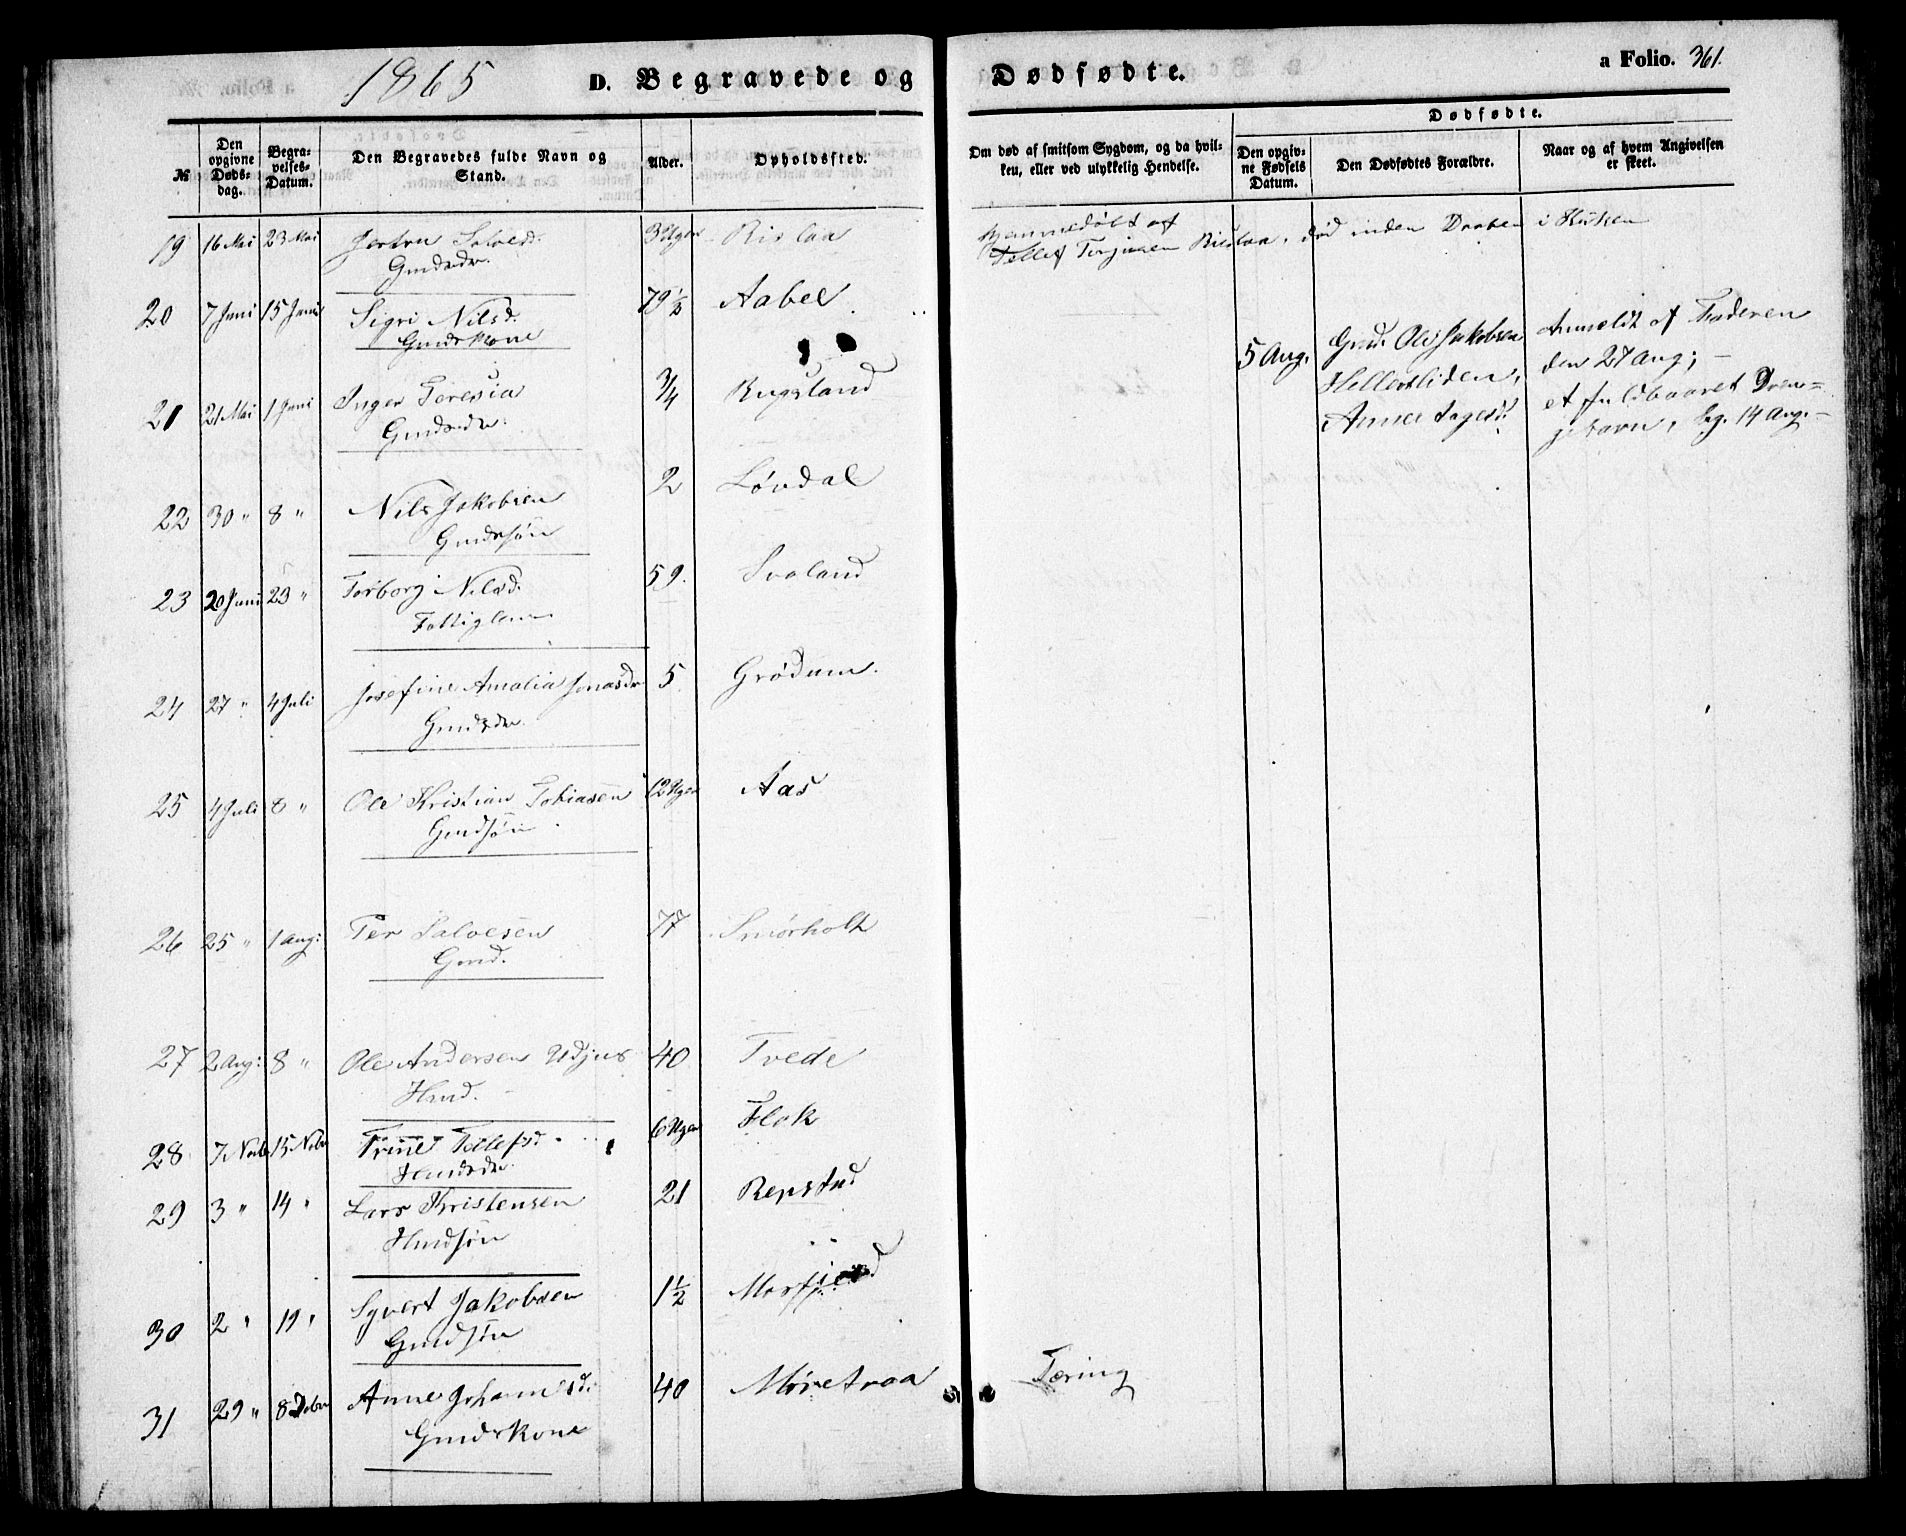 1865 D. Begravede og Dødfødte. a Folio. 361.
Dødfødte.
№
Den opgivne Døds-dag.
Begra-velses-Datum.
Den Begravedes fulde Navn og Stand.
Alder.
Opholdssted.
Om død af smitsom Sygdom, og da hvil-
ken, eller ved ulykkelig Hendelse.
Den opgiv-ne Fødsels Datum.
Den Dødfødtes Forældre.
Naar og af hvem Angivelsen er skeet.
19 16 Mai 23 Mai Salvesd. 3 Uger Rislaa Hjemmedøbt af
Gmdsdr. Tellef Terjusen Rislaa, død inden Daaben i Kirken
20 7 Juni 15 Juni Sigri Nilsd. 79 1/2 Aabel
Gmdskone
21 21 Mai 1 Juni Inger Teresia 3/4 Rugsland
Gmdsdr.
5 Aug. Gmd. Ole Jakobsen
Anmeldt af Faderen
den 27 Aug; –
et fuldbaaret Dren=
gebarn, beg. 14 Aug. –
22 30 " 8 " Nils Jakobsen 2 Løvdal
Gmdssøn
23 20 Juni 23 " Torborg Nilsd. 59. Svaland
Fattiglem
24 27 " 4 Juli Josefine Amalia Jonasdr 5 Grødum.
Gmdsdr.
25 4 Juli 8 " Ole Kristian Tobiasen 12 Uger Aas
Gmdsøn
26 25 " 1 Aug: Per Salvesen 77 Smørholt
Gmd.
27 2 Aug: 8 " Ole Andersen Udjus 40 Tvede
Hmd.
28 7 Novb 15 Nobr Trine Tellefsd. 6 Uger Flak
Hmdsdr.
29 3 " 14 " Lars Kristensen 21 Repstad
Hmdsøn
30 2 " 19 " Syvert Jakobsen 1 1/2
Gmdsøn
31 29 " 8 Debr Anne Johannesd. 40 Møretraa Tæring
Gmdskone